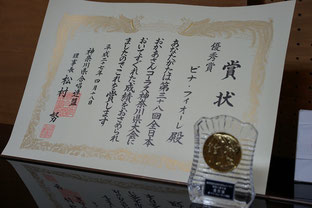 賞状
優秀賞
ピナ・フィオーレ殿
あなたがたは第三十八回全日本
おかあさんコーラス神奈川県大会に
おいてすぐれた成績をおさめられ
ましたのでこれを賞します
平成二十七年四月十八日
神奈川県合唱連盟
理事長 松村 努